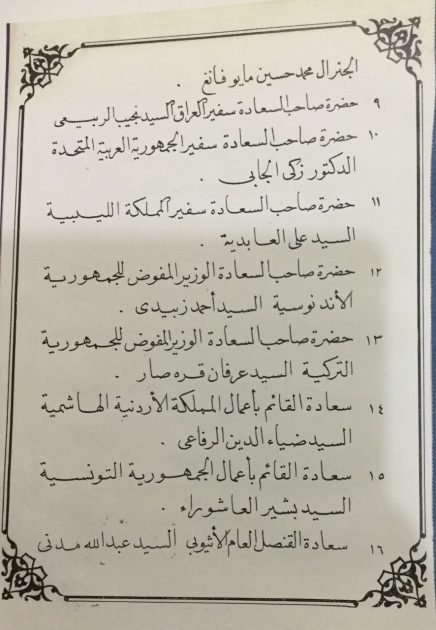 الجنرال محمد حسين مايو فانغ .
٩ حضرة صاحب السعادة سفير العراق السيد نجيب الربيعى
١٠ حضرة صاحب السعادة سفير الجمهورية العربية المتحدة
الدكتور زكى الجابى .
١١ حضرة صاحب السعادة سفير المملكة الليبية
السيد على العابدية .
١٢ حضرة صاحب السعادة الوزير المفوض للجمهورية
الأندنوسية السيد أحمد زبيدى .
١٣ حضرة صاحب السعادة الوزير المفوض للجمهورية
التركية السيد عرفان قره صار .
١٤ سعادة القائم بأعمال المملكة الأردنية الهاشمية
السيد ضياء الدين الرفاعى .
١٥ سعادة القائم بأعمال الجمهورية التونسية
السيد بشير العاشوراء .
١٦ سعادة القنصل العام الأثيوبي السيد عبدالله مدنى